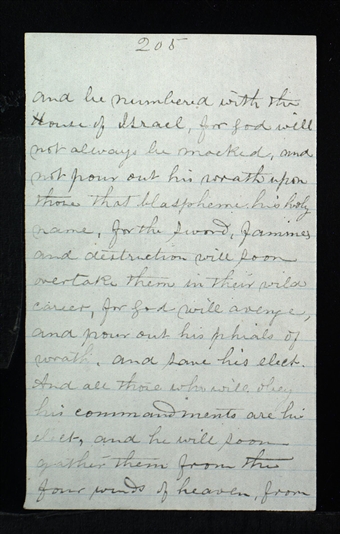 205
and be numbered with the
House of Israel, for god will
not always be mocked, and
not pour out his wrath upon
those that blaspheme his holy
name, for the sword, famines
and destruction will soon
overtake them in their wild
career, for god will avenge,
and pour out his phials of
wrath, and save his elect.
And all those who will obey
his commandments are his
elect, and he will soon
gather them from the
four winds of heaven, from